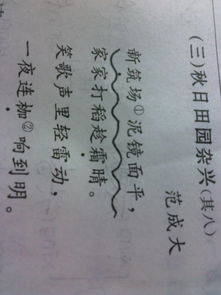 (三)秋日田园杂兴(其八)
范成大
新筑场①泥镜面平，
家家打稻趁霜晴。
笑歌声里轻雷动，
一夜连枷②响到明。